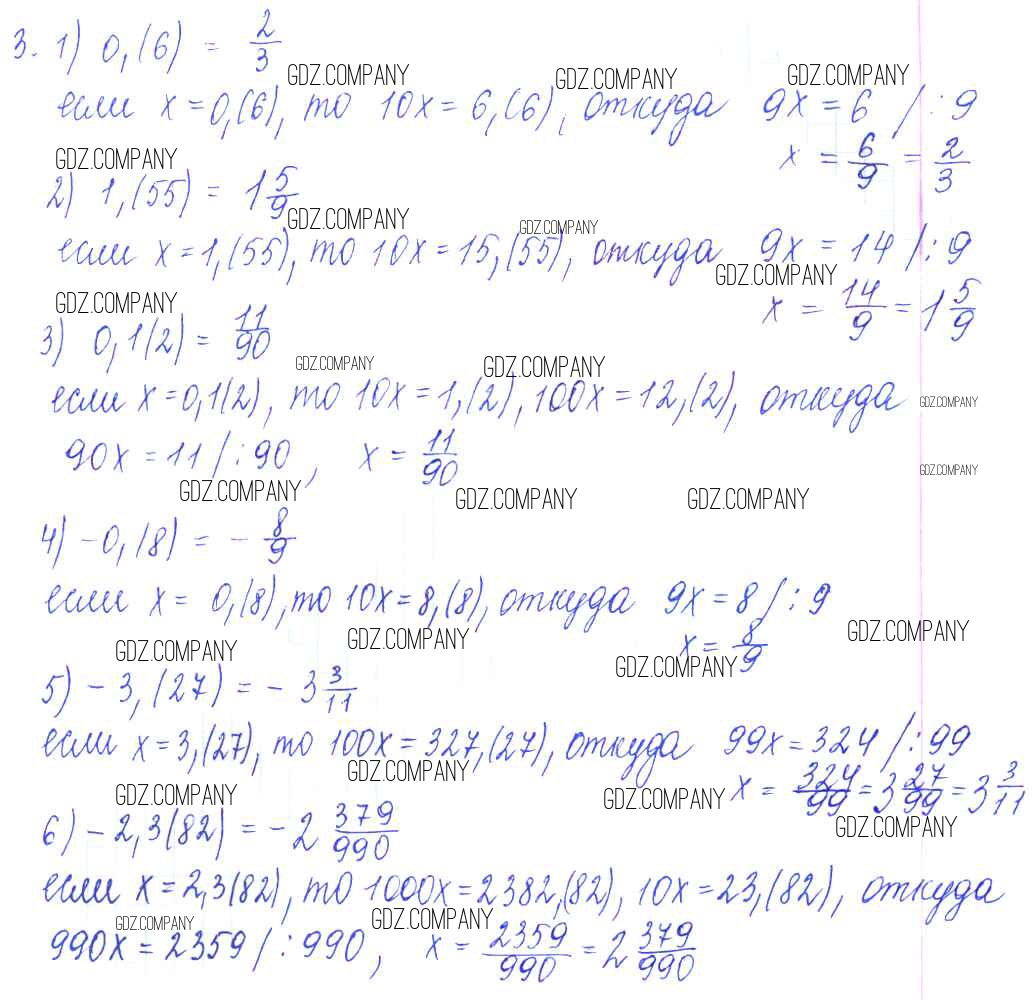 3. 1) 0,(6) = 2/3
GDZ.COMPANY GDZ.COMPANY GDZ.COMPANY
если x = 0,(6), то 10x = 6,(6), откуда 9x = 6 / : 9
x = 6/9 = 2/3
GDZ.COMPANY
2) 1,(55) = 1 5/9
GDZ.COMPANY GDZ.COMPANY
если x = 1,(55), то 10x = 15,(55), откуда 9x = 14 / : 9
GDZ.COMPANY
x = 14/9 = 1 5/9
GDZ.COMPANY
3) 0,1(2) = 11/90
GDZ.COMPANY GDZ.COMPANY
если x = 0,1(2), то 10x = 1,(2), 100x = 12,(2), откуда
GDZ.COMPANY
90x = 11 / : 90, x = 11/90
GDZ.COMPANY
GDZ.COMPANY GDZ.COMPANY GDZ.COMPANY
4) -0,(8) = - 8/9
если x = 0,(8), то 10x = 8,(8), откуда 9x = 8 / : 9
x = 8/9
GDZ.COMPANY GDZ.COMPANY GDZ.COMPANY GDZ.COMPANY
5) -3,(27) = - 3 3/11
если x = 3,(27), то 100x = 327,(27), откуда 99x = 324 / : 99
GDZ.COMPANY
x = 324/99 = 3 27/99 = 3 3/11
GDZ.COMPANY GDZ.COMPANY GDZ.COMPANY
6) -2,3(82) = -2 379/990
если x = 2,3(82), то 1000x = 2382,(82), 10x = 23,(82), откуда
GDZ.COMPANY GDZ.COMPANY
990x = 2359 / : 990, x = 2359/990 = 2 379/990